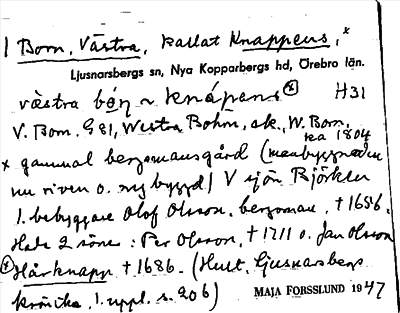 1 Born, Västra, kallat Knappens,ˣ
Ljusnarsbergs sn, Nya Kopparbergs hd, Örebro län.
västra bór ~ knápens ⓧ H31
V. Born. G81, Westra Bohrn, ek., W. Born, ka 1804
x gammal bergsmansgård (manbyggnaden
nu riven o. nybyggd) V sjön Björken
1. bebyggare Olof Olsson, bergsman, †1686.
Hade 2 söner: Per Olsson, †1711 o. Jan Olsson
ⓧ Hårknapp †1686. (Hult, Ljusnarsbergs
krönika, 1. uppl. s. 206) MAJA FORSSLUND 1947